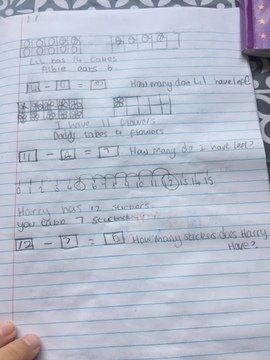 Lil has 14 cakes
Albie eats 6
14 - 6 = How many does Lil have left
I have 11 flowers
Daddy takes 4 flowers
11 - 4 = ? How many do I have left?
0 1 2 3 4 5 6 7 8 9 10 11 12 13 14 15
Harry has 12 stickers
you take 7 stickers
12 - 7 = 5 How many stickers does Harry
have?